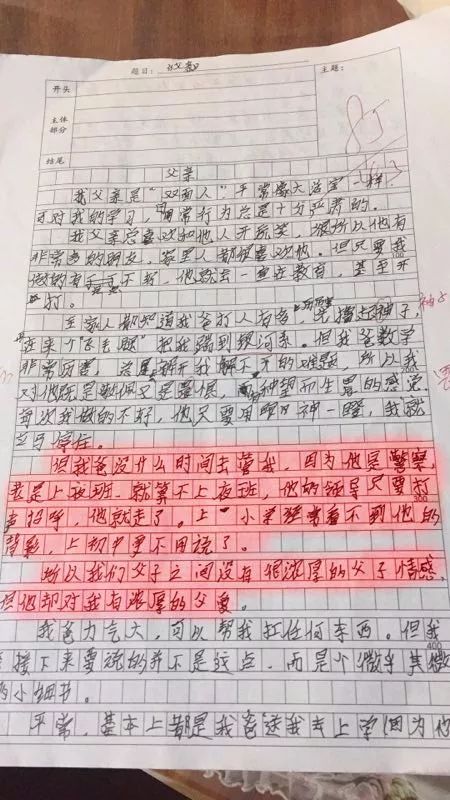 题目：《父亲》
主题：
开头
主体
部分
结尾
85
父亲
我父亲是"双面人"，平常像大活宝一样，
可对我的学习，日常行为总是十分严肃的。
我父亲总喜欢和他人开玩笑，使所以他有
非常多的朋友，家里人都很喜欢他。但只要我
100
做的有一不好，他就会一直在教育，甚至开
打。
全家人都知道我爸打人有多，先撸起袖子，
袖子
再来个"飞毛腿"把我踢到银河系。但我爸数学
非常厉害，这是解开我解不开的难题，所以我
200
对他既是敬佩又是畏惧，有种望而生畏的感觉
每次我做的不好，他只要用眼神一瞪，我就
立马停住。
但我爸没什么时间去管我，因为他是警察，
老是上夜班，就算不上夜班，他的领导只要打
300
声招呼，他就走了。上小学经常看不到他的
背影，上初中更不用说了。
所以我们父子之间没有很浓厚的父子情感，
但他却对我有浓厚的父爱。
我爸力气大，可以帮我扛任何东西。但我
400
接下来要说的并不是这点，而是个微乎其微
的小细节。
平常，基本上都是我爸送我去上学（因为他